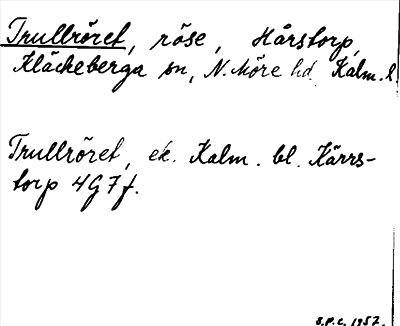 Trullröret, röse, Hårstorp,
Kläckeberga sn, N. Möre hd, Kalm. l.
Trullröret, ek. Kalm. bl. Kärrs-
torp 4G7f.
S.P.C. 1957.